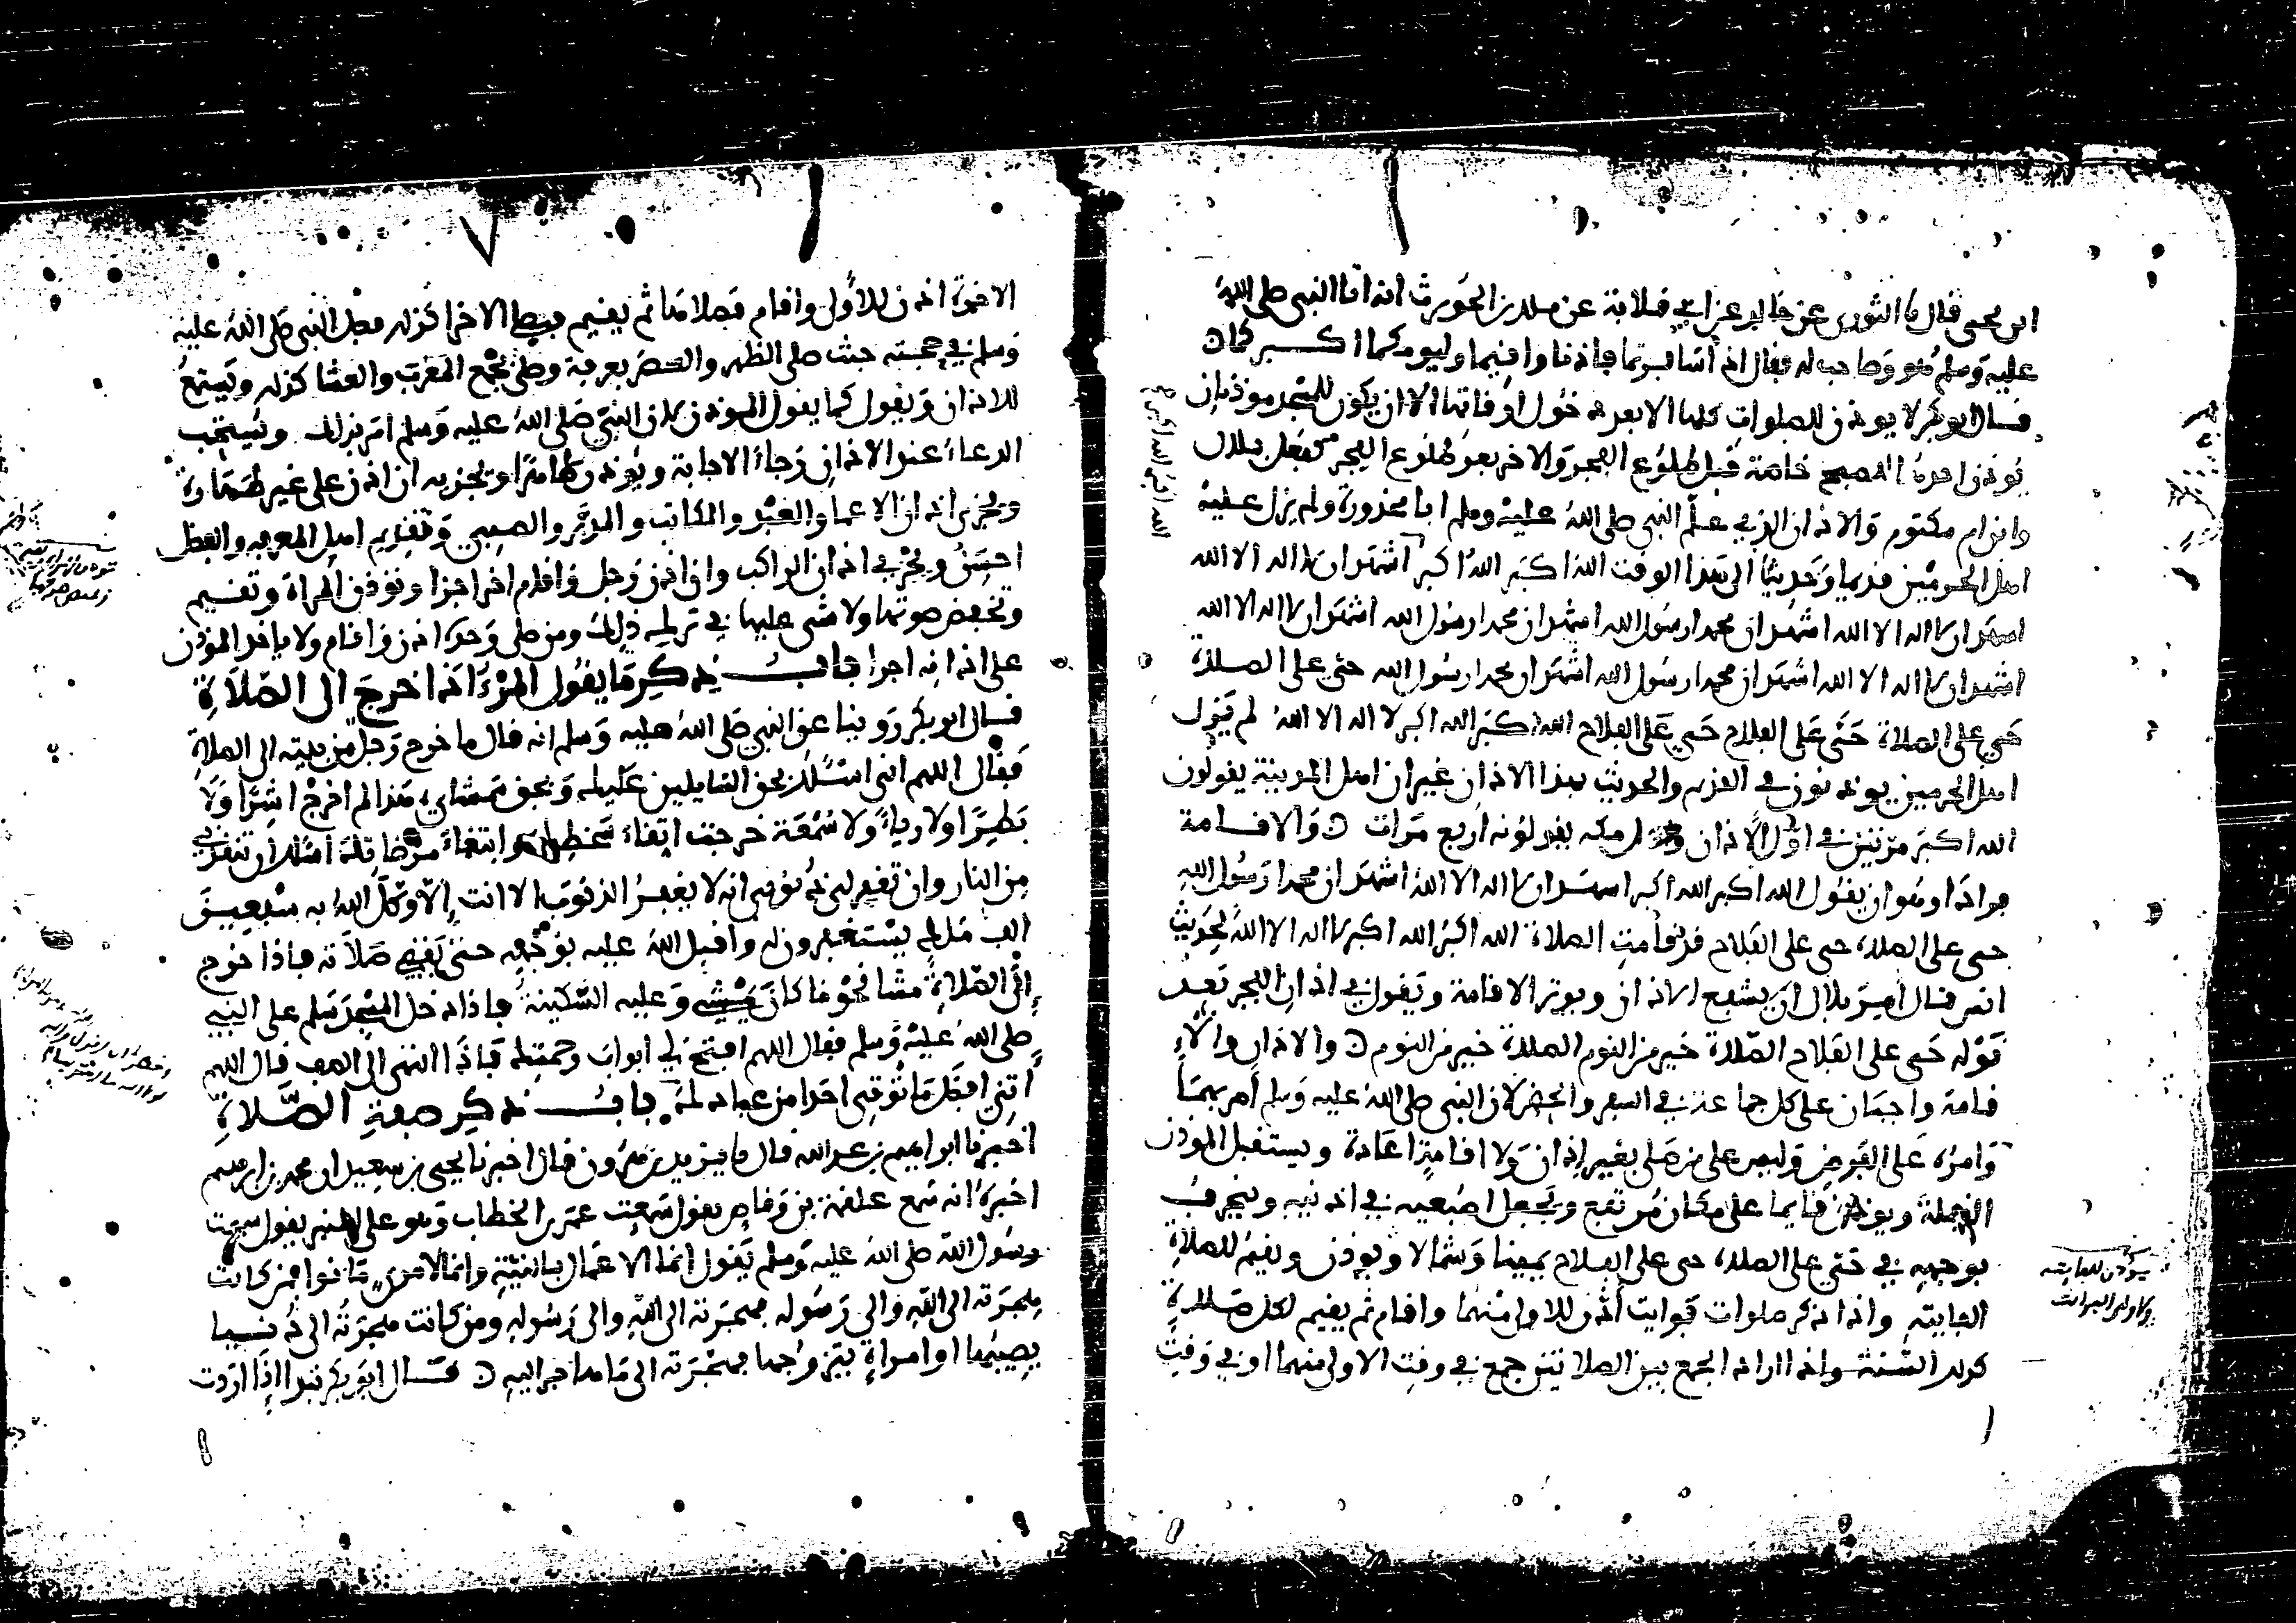 ابن يحيى قال نا الثوري عن خالد عن ابي قلابة عن ملك بن الحويرث انه اتا النبي صلى الله
عليه وسلم هو وصاحب له فقال اذا سافرتما فاذنا واقيما وليومكما اكبركما ن
قال ابو بكر لا يوذن للصلوات كلها الا بعد دخول اوقاتها الا ان يكون للمسجد موذنان
يوذن احدهما للصبح خاصة قبل طلوع الفجر والاخر بعد طلوع الفجر كفعل بلال
وابن ام مكتوم والاذان الذي علم النبي صلى الله عليه وسلم ابا محذورة ولم يزل عليه
اهل الحرمين قديما وحديثا الى هذا الوقت الله اكبر الله اكبر اشهد ان لا اله الا الله
اشهد ان لا اله الا الله اشهد ان محمدا رسول الله اشهد ان محمدا رسول الله اشهد ان لا اله الا الله
اشهد ان لا اله الا الله اشهد ان محمدا رسول الله اشهد ان محمدا رسول الله حي على الصلاة
حي على الصلاة حي على الفلاح حي على الفلاح الله اكبر الله اكبر لا اله الا الله لم يزل
اهل الحرمين يوذنون في القديم والحديث بهذا الاذان غير ان اهل المدينة يقولون
الله اكبر مرتين في اول الاذان واهل مكة يقولونه اربع مرات ن والاقامة
فرادا وهو ان يقول الله اكبر الله اكبر اشهد ان لا اله الا الله اشهد ان محمدا رسول الله
حي على الصلاة حي على الفلاح قد قامت الصلاة الله اكبر الله اكبر لا اله الا الله لحديث
انس قال امر بلال ان يشفع الاذان ويوتر الاقامة ويقول في اذان الفجر بعد
قوله حي على الفلاح الصلاة خير من النوم الصلاة خير من النوم ن والاذان والا
قامة واجبان على كل جماعة في السفر والحضر لان النبي صلى الله عليه وسلم امر بهما
وامره على الفرض وليس على من صلى بغير اذان ولا اقامة اعادة ويستقبل الموذن
القبلة ويوذن قايما على مكان مرتفع ويجعل اصبعيه في اذنيه وينحرف
بوجهه في حي على الصلاة حي على الفلاح يمينا وشمالا ويوذن ويقيم للصلاة
الفايتة واذا ذكر صلوات فوايت اذن للاولى منهما واقام ثم يقيم لكل صلاة
كذلك السنة واذا اراد الجمع بين الصلاتين جمع في وقت الاولى منهما او في وقت
الاخرة اذن للاولى واقام فصلاها ثم يقيم فيصلي الاخرا كذلك فعل النبي صلى الله عليه
وسلم في حجته حيث صلى الظهر والعصر بعرفة وصلى بجمع المغرب والعشا كذلك ويستمع
للاذان ويقول كما يقول الموذن لان النبي صلى الله عليه وسلم امر بذلك ويستحب
الدعاء عند الاذان رجاء الاجابة ويوذن طاهرا ويجزيه ان اذن على غير طهارة
ويجزي اذان الاعما والعبد والمكاتب والمدبر والصبي وتقديم اهل المعرفة والفضل
احسن ويجزي اذان الراكب وان اذن رجل واقام اخر اجزا وتوذن المراة وتقيم
وتخفض صوتها ولا شي عليها في ترك ذلك ومن صلى وحده اذن واقام ولا ياخذ الموذن
على اذانه اجرا باب ذكر ما يقول المرء اذا خرج الى الصلاة
قال ابو بكر روينا عن النبي صلى الله عليه وسلم انه قال ما خرج رجل من بيته الى الصلاة
فقال اللهم اني اسئلك بحق السايلين عليك وبحق ممشاي هذا لم اخرج اشرا ولا
بطرا ولا رياء ولا سمعة خرجت اتقاء سخطك وابتغاء مرضاتك اسئلك ان تنقذني
من النار وان تغفر لي ذنوبي انه لا يغفر الذنوب الا انت الا وكل الله به سبعين
الف ملك يستغفرون له واقبل الله عليه بوجهه حتى يقضي صلاته فاذا خرج
الى الصلاة مشا نحو ما كان يمشي وعليه السكينة فاذا دخل المسجد سلم على النبي
صلى الله عليه وسلم فقال اللهم افتح لي ابواب رحمتك فاذا انتهى الى الصف قال اللهم
اتني افضل ما توتي احدا من عبادك باب ذكر صفة الصلاة
اخبرنا ابراهيم بن عبد الله قال نا يزيد بن هرون قال اخبرنا يحيى بن سعيد ان محمد بن ابرهيم
اخبره انه سمع علقمة بن وقاص يقول سمعت عمر بن الخطاب وهو على المنبر يقول سمعت
رسول الله صلى الله عليه وسلم يقول انما الاعمال بالنية وانما لامرئ ما نوا فمن كانت
هجرته الى الله والى رسوله فهجرته الى الله والى رسوله ومن كانت هجرته الى دنيا
يصيبها او امراة يتزوجها فهجرته الى ما هاجر اليه ن قال ابو بكر فاذا اردت